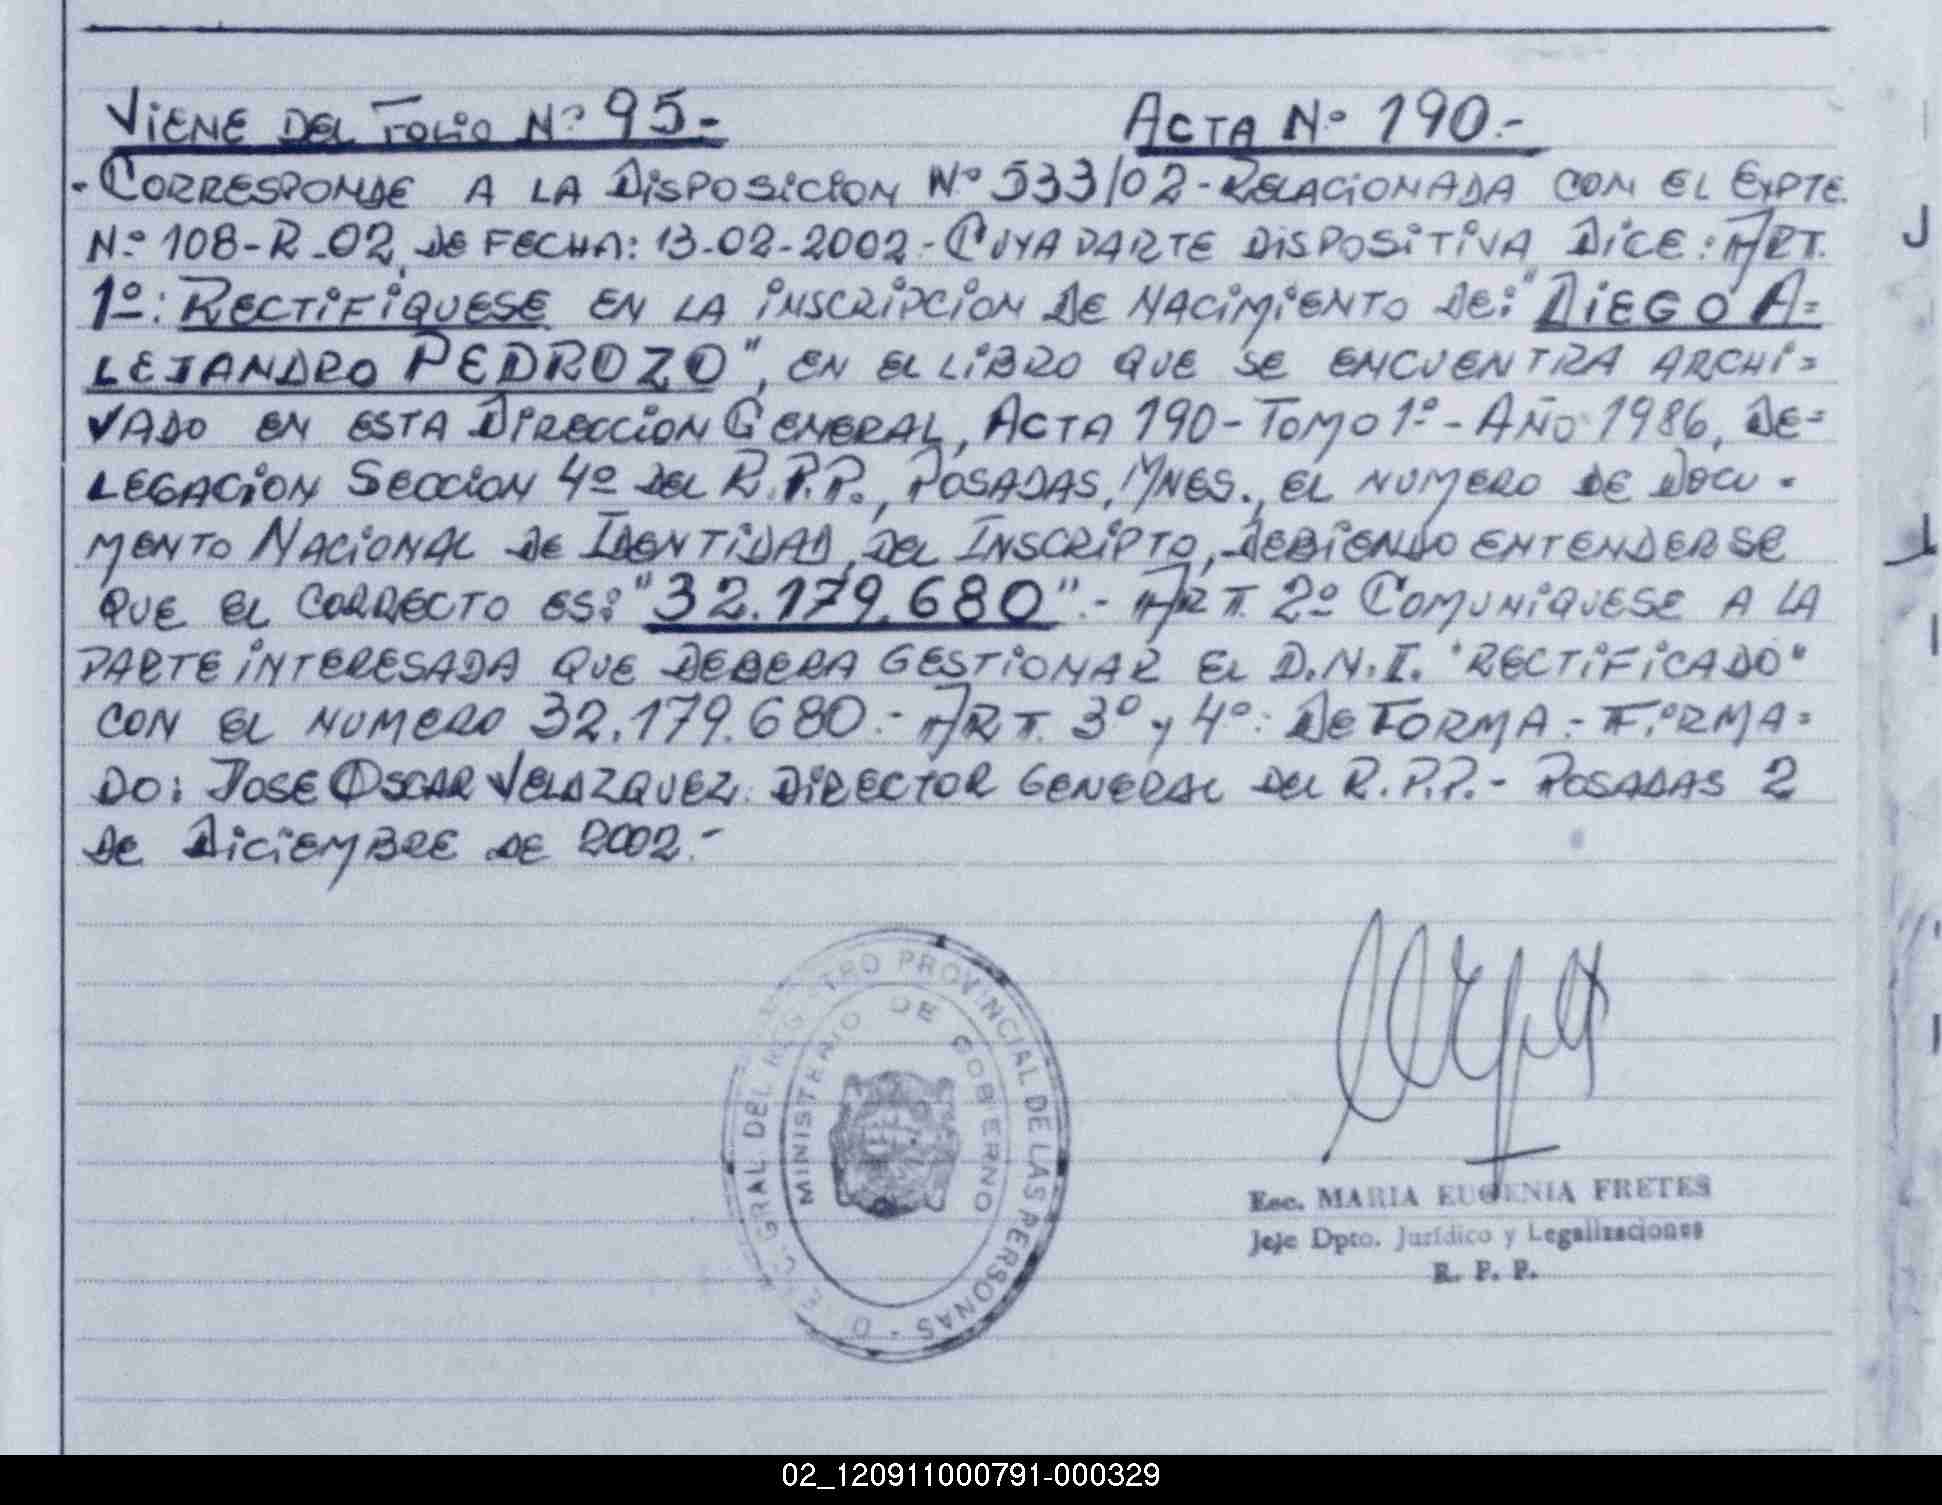 VIENE DEL FOLIO Nº 95.- ACTA Nº 190.-
-CORRESPONDE A LA DISPOSICION Nº 533/02-RELACIONADA CON EL EXPTE.
Nº 108-R-02, DE FECHA: 13-02-2002.- CUYA PARTE DISPOSITIVA DICE: ART.
1º: RECTIFIQUESE EN LA INSCRIPCION DE NACIMIENTO DE: "DIEGO A=
LEJANDRO PEDROZO", EN EL LIBRO QUE SE ENCUENTRA ARCHI=
VADO EN ESTA DIRECCION GENERAL, ACTA 190-TOMO 1º-AÑO 1986, DE=
LEGACION SECCION 4º DEL R.P.P., POSADAS, MNES., EL NUMERO DE DOCU-
MENTO NACIONAL DE IDENTIDAD, DEL INSCRIPTO, DEBIENDO ENTENDERSE
QUE EL CORRECTO ES: "32.179.680".- ART. 2º COMUNIQUESE A LA
PARTE INTERESADA QUE DEBERA GESTIONAR EL D.N.I. "RECTIFICADO"
CON EL NUMERO 32.179.680.- ART. 3º y 4º: DE FORMA.- FIRMA=
DO: JOSE OSCAR VELAZQUEZ. DIRECTOR GENERAL DEL R.P.P.- POSADAS 2
DE DICIEMBRE DE 2002.-
GRAL. DEL REGISTRO PROVINCIAL DE LAS PERSONAS
MINISTERIO DE GOBIERNO
Esc. MARIA EUGENIA FRETES
Jefe Dpto. Jurídico y Legalizaciones
R. P. P.
02_120911000791-000329